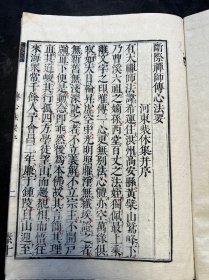 斷際禪師傳心法要
河東裴休集并序
有大禪師法諱希運住洪州高安縣黃檗山鷲峰下
乃曹溪六祖之嫡孫西堂百丈之法姪獨佩最上乘
離文字之印唯傳一心更無別法心體亦空萬緣俱寂
如大日輪昇虛空中光明照耀淨無纖埃證之者
無新舊無淺深說之者不立義解不立宗主不開戶牖
直下便是動念即乖然後為本佛故其言簡其理
直其道峻其行孤四方學徒望山而趨覩相而悟往
來海眾常千餘人予會昌二年廉于鍾陵自山迎至